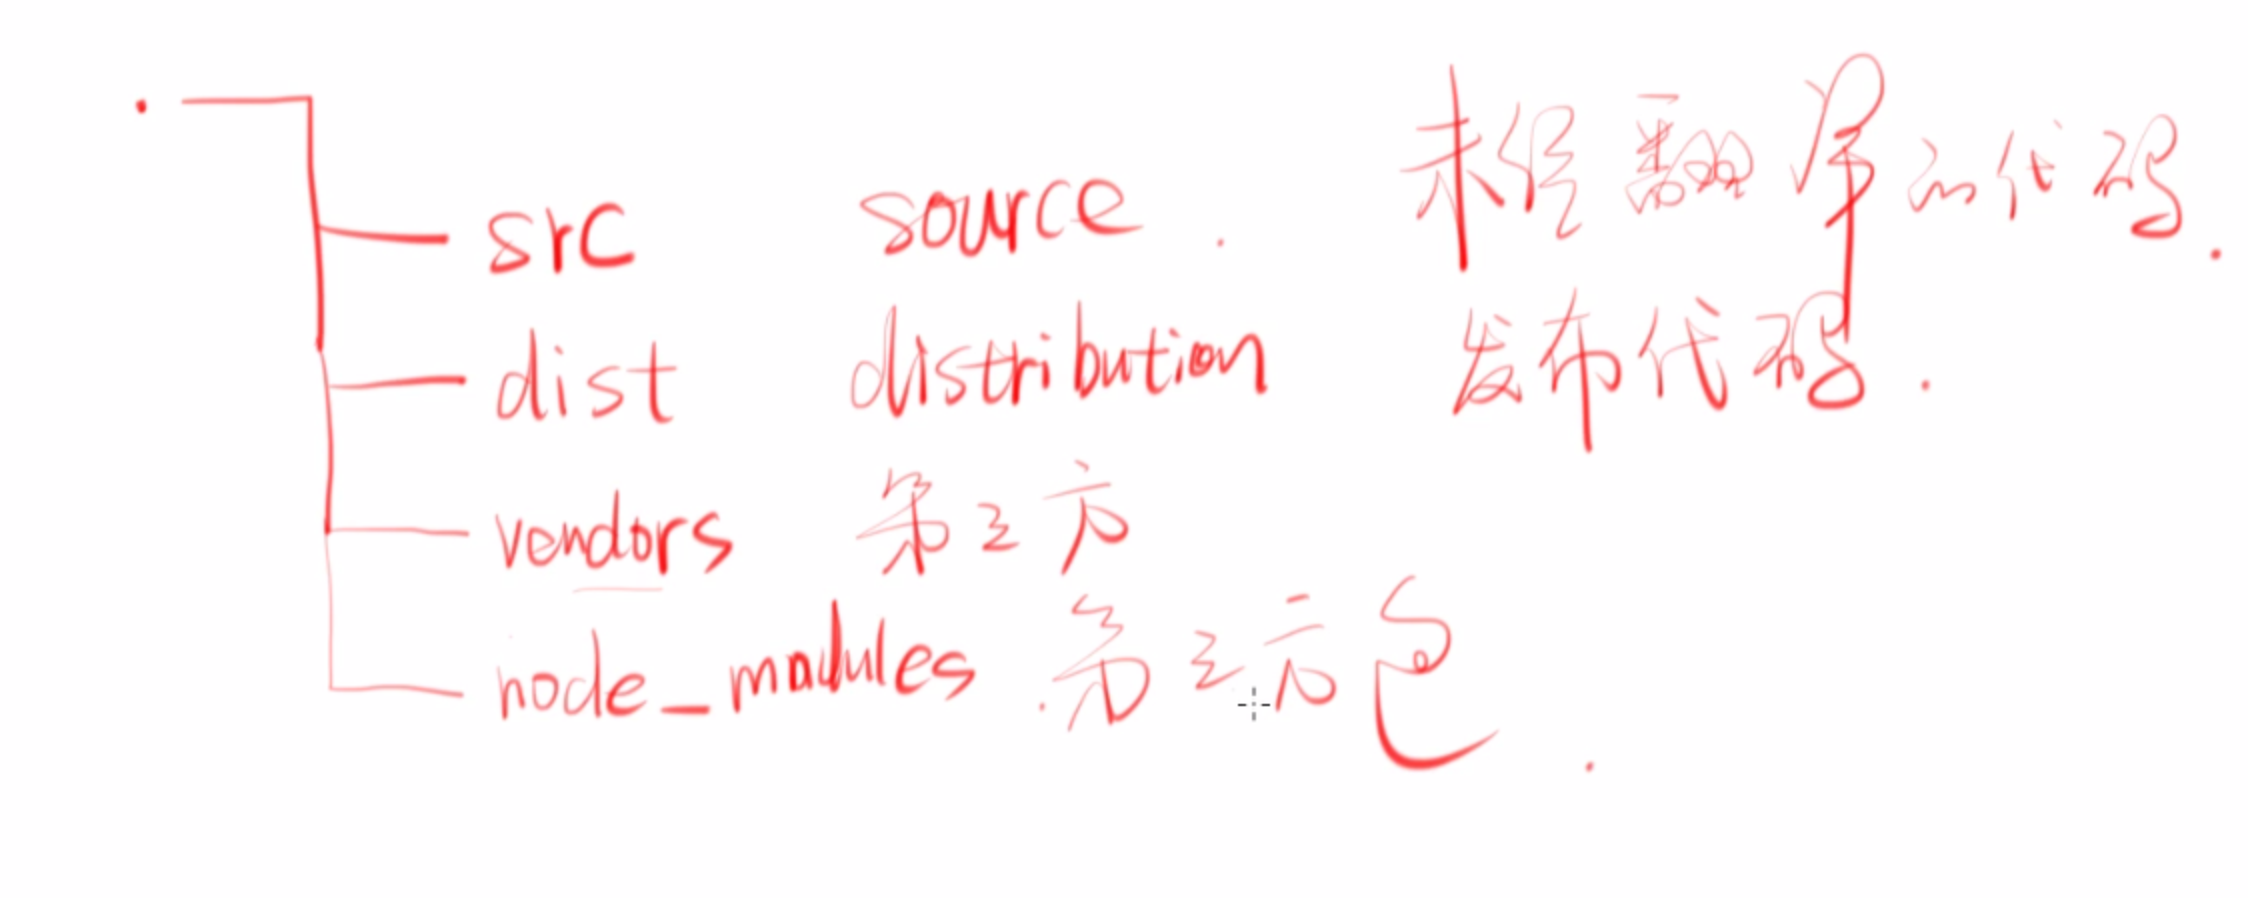 src source. 未经翻译的代码.
dist distribution 发布代码.
vendors 第三方
node_modules. 第三方包.